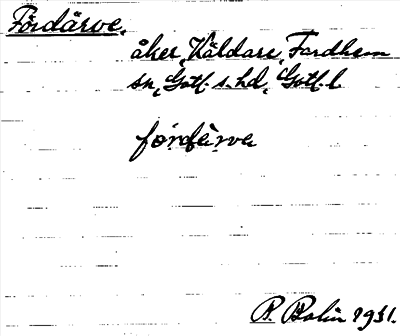 Fördärve,
åker, Käldare, Fardhem
sn, Gotl. s. hd, Gotl. l
fördärva
P. Bolin 1931.